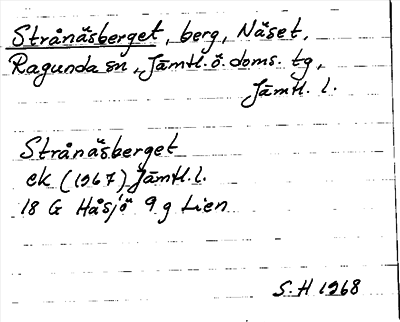 Strånäsberget, berg, Näset,
Ragunda sn, Jämtl. ö. doms. tg,
Jämtl. l.
Strånäsberget
ek (1967) Jämtl. l.
18 G Håsjö 9 g Lien
S.H 1968